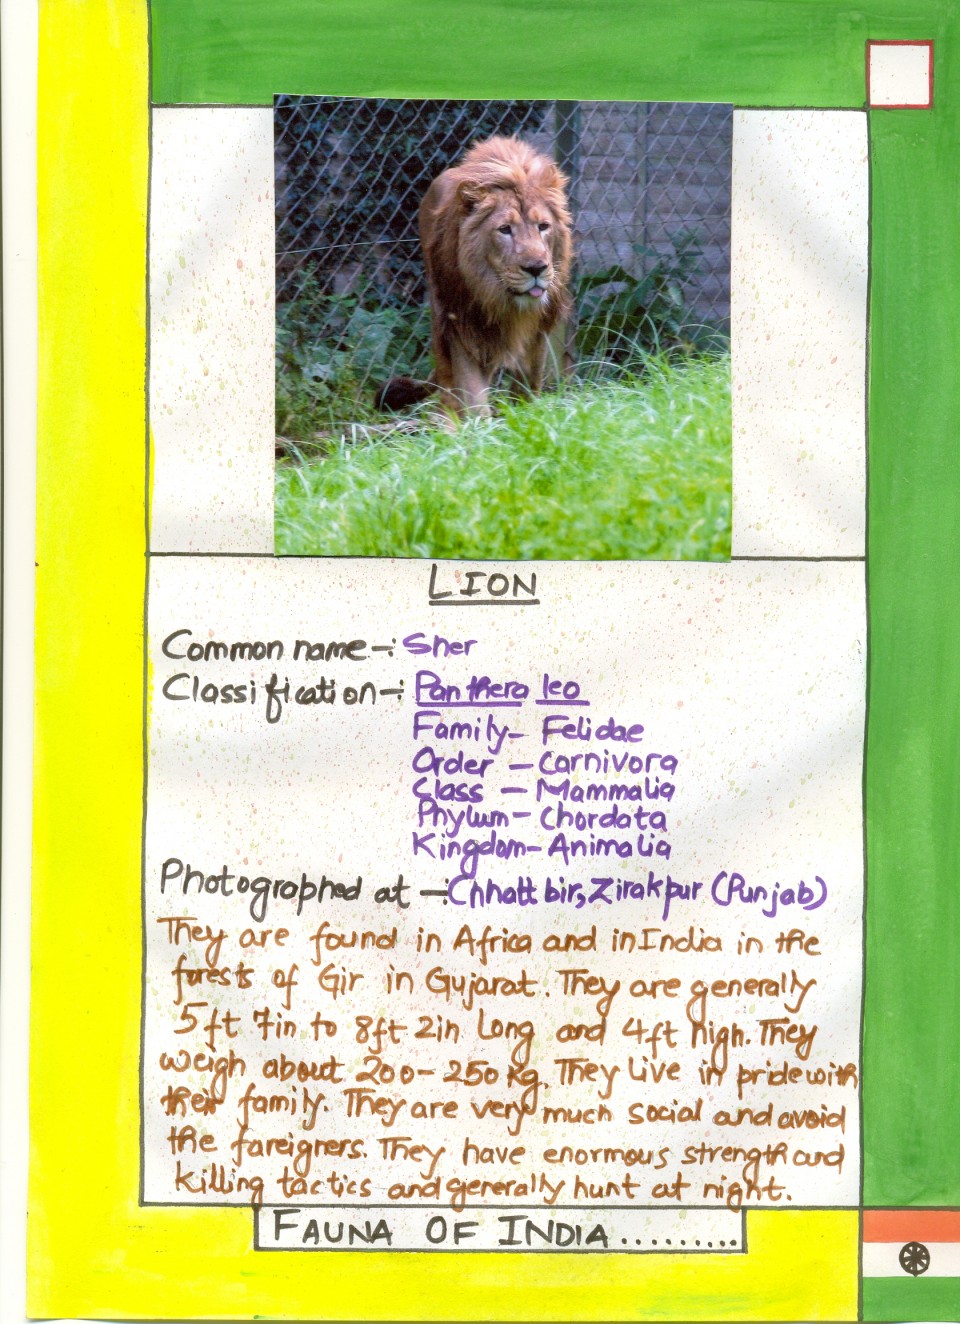 LION
Common name -: Sher
Classification -: Panthera leo
Family - Felidae
Order - Carnivora
Class - Mammalia
Phylum - Chordata
Kingdom - Animalia
Photographed at -: Chhatt bir, Zirakpur (Punjab)
They are found in Africa and in India in the
forests of Gir in Gujarat. They are generally
5ft 7in to 8ft 2in long and 4ft high. They
weigh about 200-250 kg. They live in pride with
their family. They are very much social and avoid
the fareigners. They have enormous strength and
killing tactics and generally hunt at night.
FAUNA OF INDIA.........